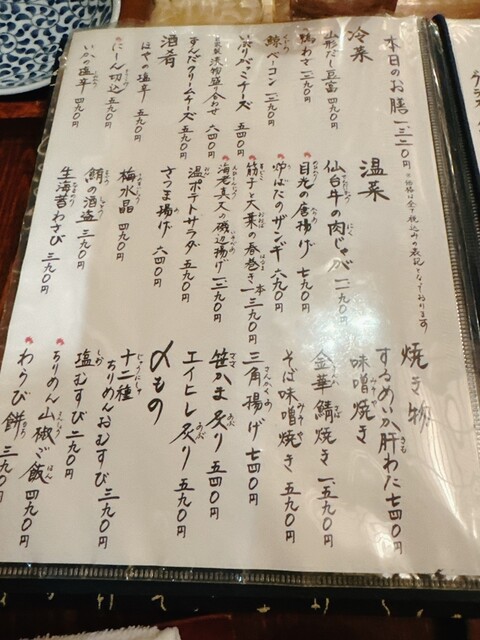 本日のお膳 一、三二〇円 ※価格は全て税込みの表記となっております
冷菜
山形だし豆富 四九〇円
鴨わさ 一、二九〇円
鯨ベーコン 一、二九〇円
いぶりバッコチーズ 五四〇円
漬物盛り合わせ 六四〇円
ずんだクリームチーズ 五九〇円
酒肴
ほやの塩辛 五九〇円
にしん切込 五九〇円
いかの塩辛
温菜
仙台牛の肉じゃが 一、二九〇円
目光の唐揚げ 七九〇円
炉ばたのザンギ 六九〇円
筋子と大葉の春巻き 一本 三九〇円
海老真丈の磯辺揚げ 一、二九〇円
温ポテトサラダ 五九〇円
さつま揚げ 六四〇円
梅水晶 四九〇円
鮪の酒盗 三九〇円
生海苔わさび 三九〇円
焼き物
するめいか肝わた味噌焼き 七四〇円
金華鯖焼き 一、五九〇円
そば味噌焼き 五九〇円
三角揚げ 七四〇円
笹かま炙り 五四〇円
エイヒレ炙り 五九〇円
〆もの
十二種ちりめんおむすび 三九〇円
塩むすび 二九〇円
ちりめん山椒ご飯 四九〇円
わらび餅 三九〇円